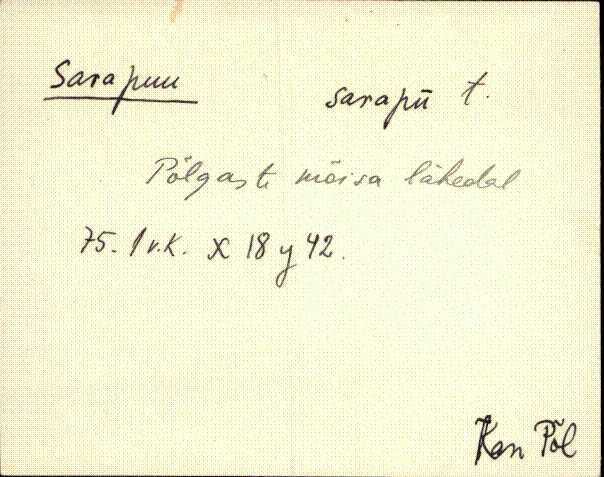 Sarapuu sarapū t.
Põlgaste mõisa lähedal
75. 1 v.k. X 18 y 42.
Kan Põl